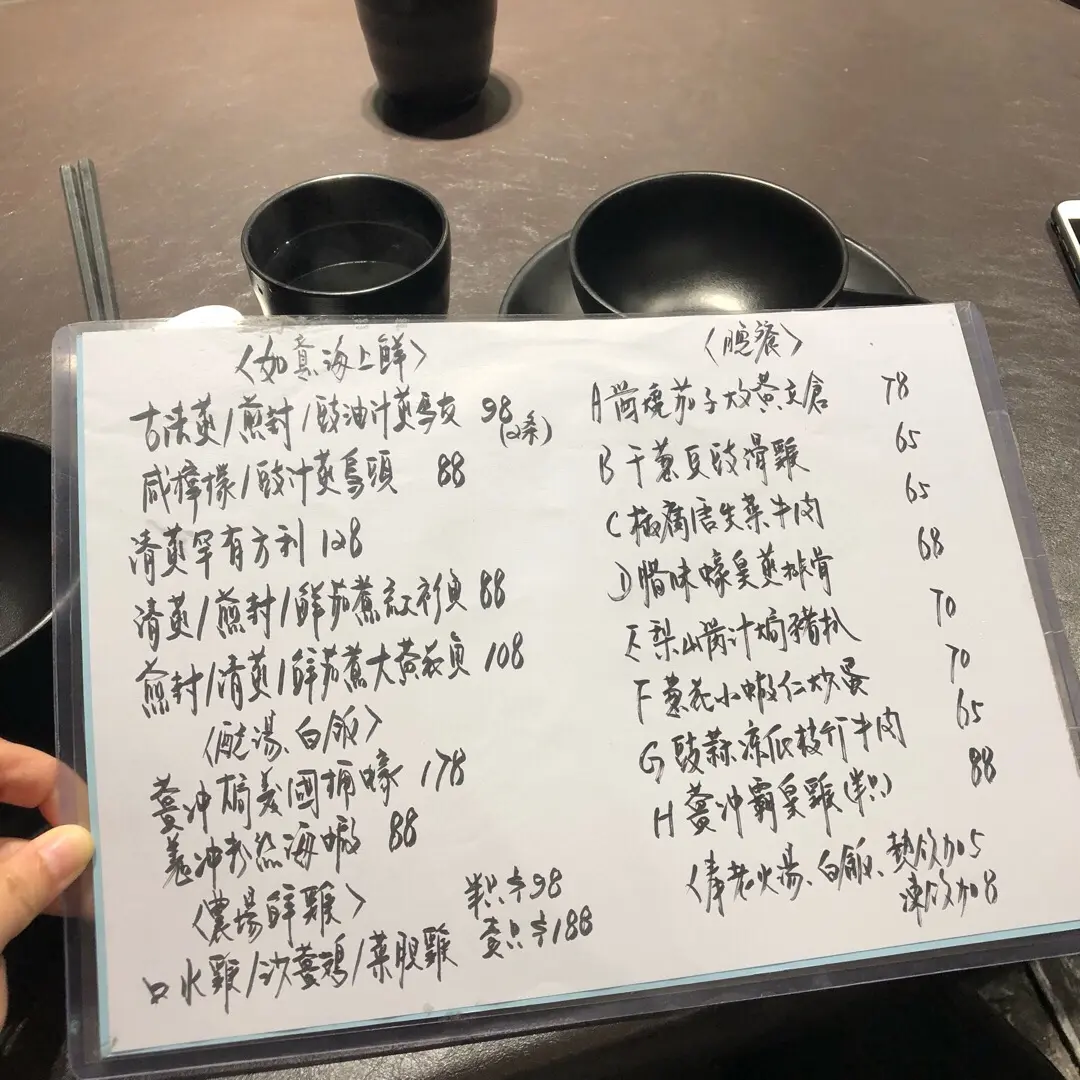 〈如意海上鮮〉
古法蒸/煎封/豉油汁蒸烏友 98
(2条)
咸檸檬/豉汁蒸烏頭 88
清蒸罕有方利 128
清蒸/煎封/鮮茄煮紅衫魚 88
煎封/清蒸/鮮茄煮大黃花魚 108
〈配湯、白飯〉
薑冲焗美國桶蠔 178
薑冲粉絲海蝦 88
〈農場鮮雞〉
口水雞/沙薑鷄/菜胆雞
半只$98
壹只$188
〈晚飯〉
A 醬燒茄子火黃立倉 78
B 干葱豆豉滑雞 65
C 椒腐唐生菜牛肉 65
D 腊味蠔皇蒸排骨 68
E 梨山醬汁焗豬扒 70
F 葱花小蝦仁炒蛋 70
G 豉蒜凉瓜枝竹牛肉 65
H 薑冲霸皇雞(半只) 88
〈老火湯、白飯、熱飲加5
凍飲加8